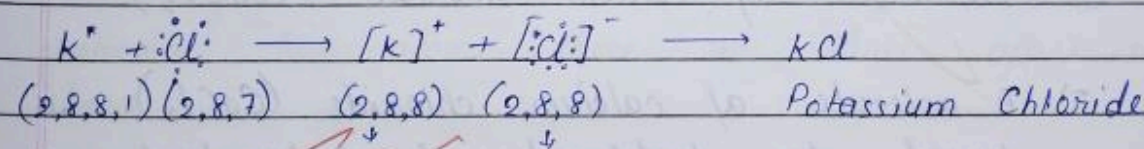 K• + :Cl: ⟶ [K]⁺ + [:Cl:]⁻ ⟶ KCl
(2,8,8,1) (2,8,7) (2,8,8) (2,8,8) Potassium Chloride
↓ ↓